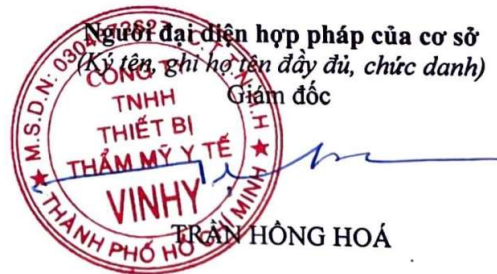 Người đại diện hợp pháp của cơ sở
(Ký tên, ghi họ tên đầy đủ, chức danh)
Giám đốc
CÔNG TY
TNHH
THIẾT BỊ
THẨM MỸ Y TẾ
VINHY
THÀNH PHỐ HỒ CHÍ MINH
TRẦN HỒNG HOÁ